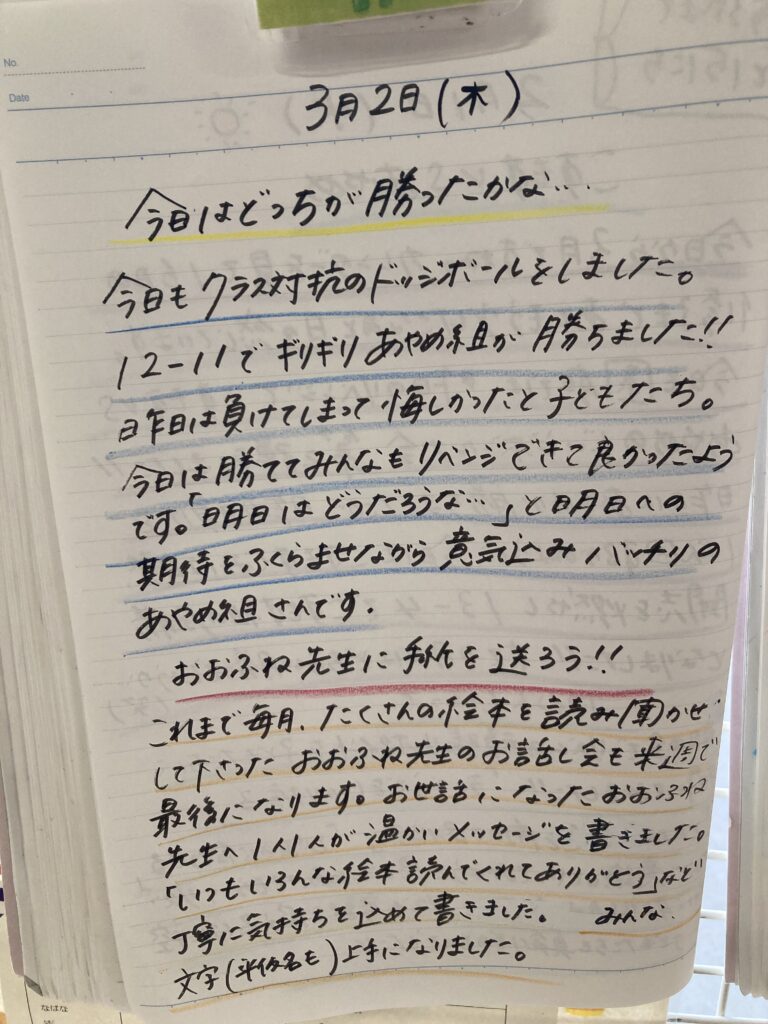 No.
Date
3月2日(木)
今日はどっちが勝ったかな…
今日もクラス対抗のドッジボールをしました。
12-11でギリギリあやめ組が勝ちました!!
昨日は負けてしまって悔しかったと子どもたち。
今日は勝ててみんなもリベンジできて良かったよう
です。「明日はどうだろうな…」と明日への
期待をふくらませながら意気込みバッチリの
あやめ組さんです。
おおふね先生に手紙を送ろう!!
これまで毎月、たくさんの絵本を読み聞かせ
して下さったおおふね先生のお話し会も来週で
最後になります。お世話になったおおふね
先生へ1人1人が温かいメッセージを書きました。
「いつもいろんな絵本読んでくれてありがとう」など
丁寧に気持ちを込めて書きました。 みんな、
文字(平仮名も)上手になりました。
なばな